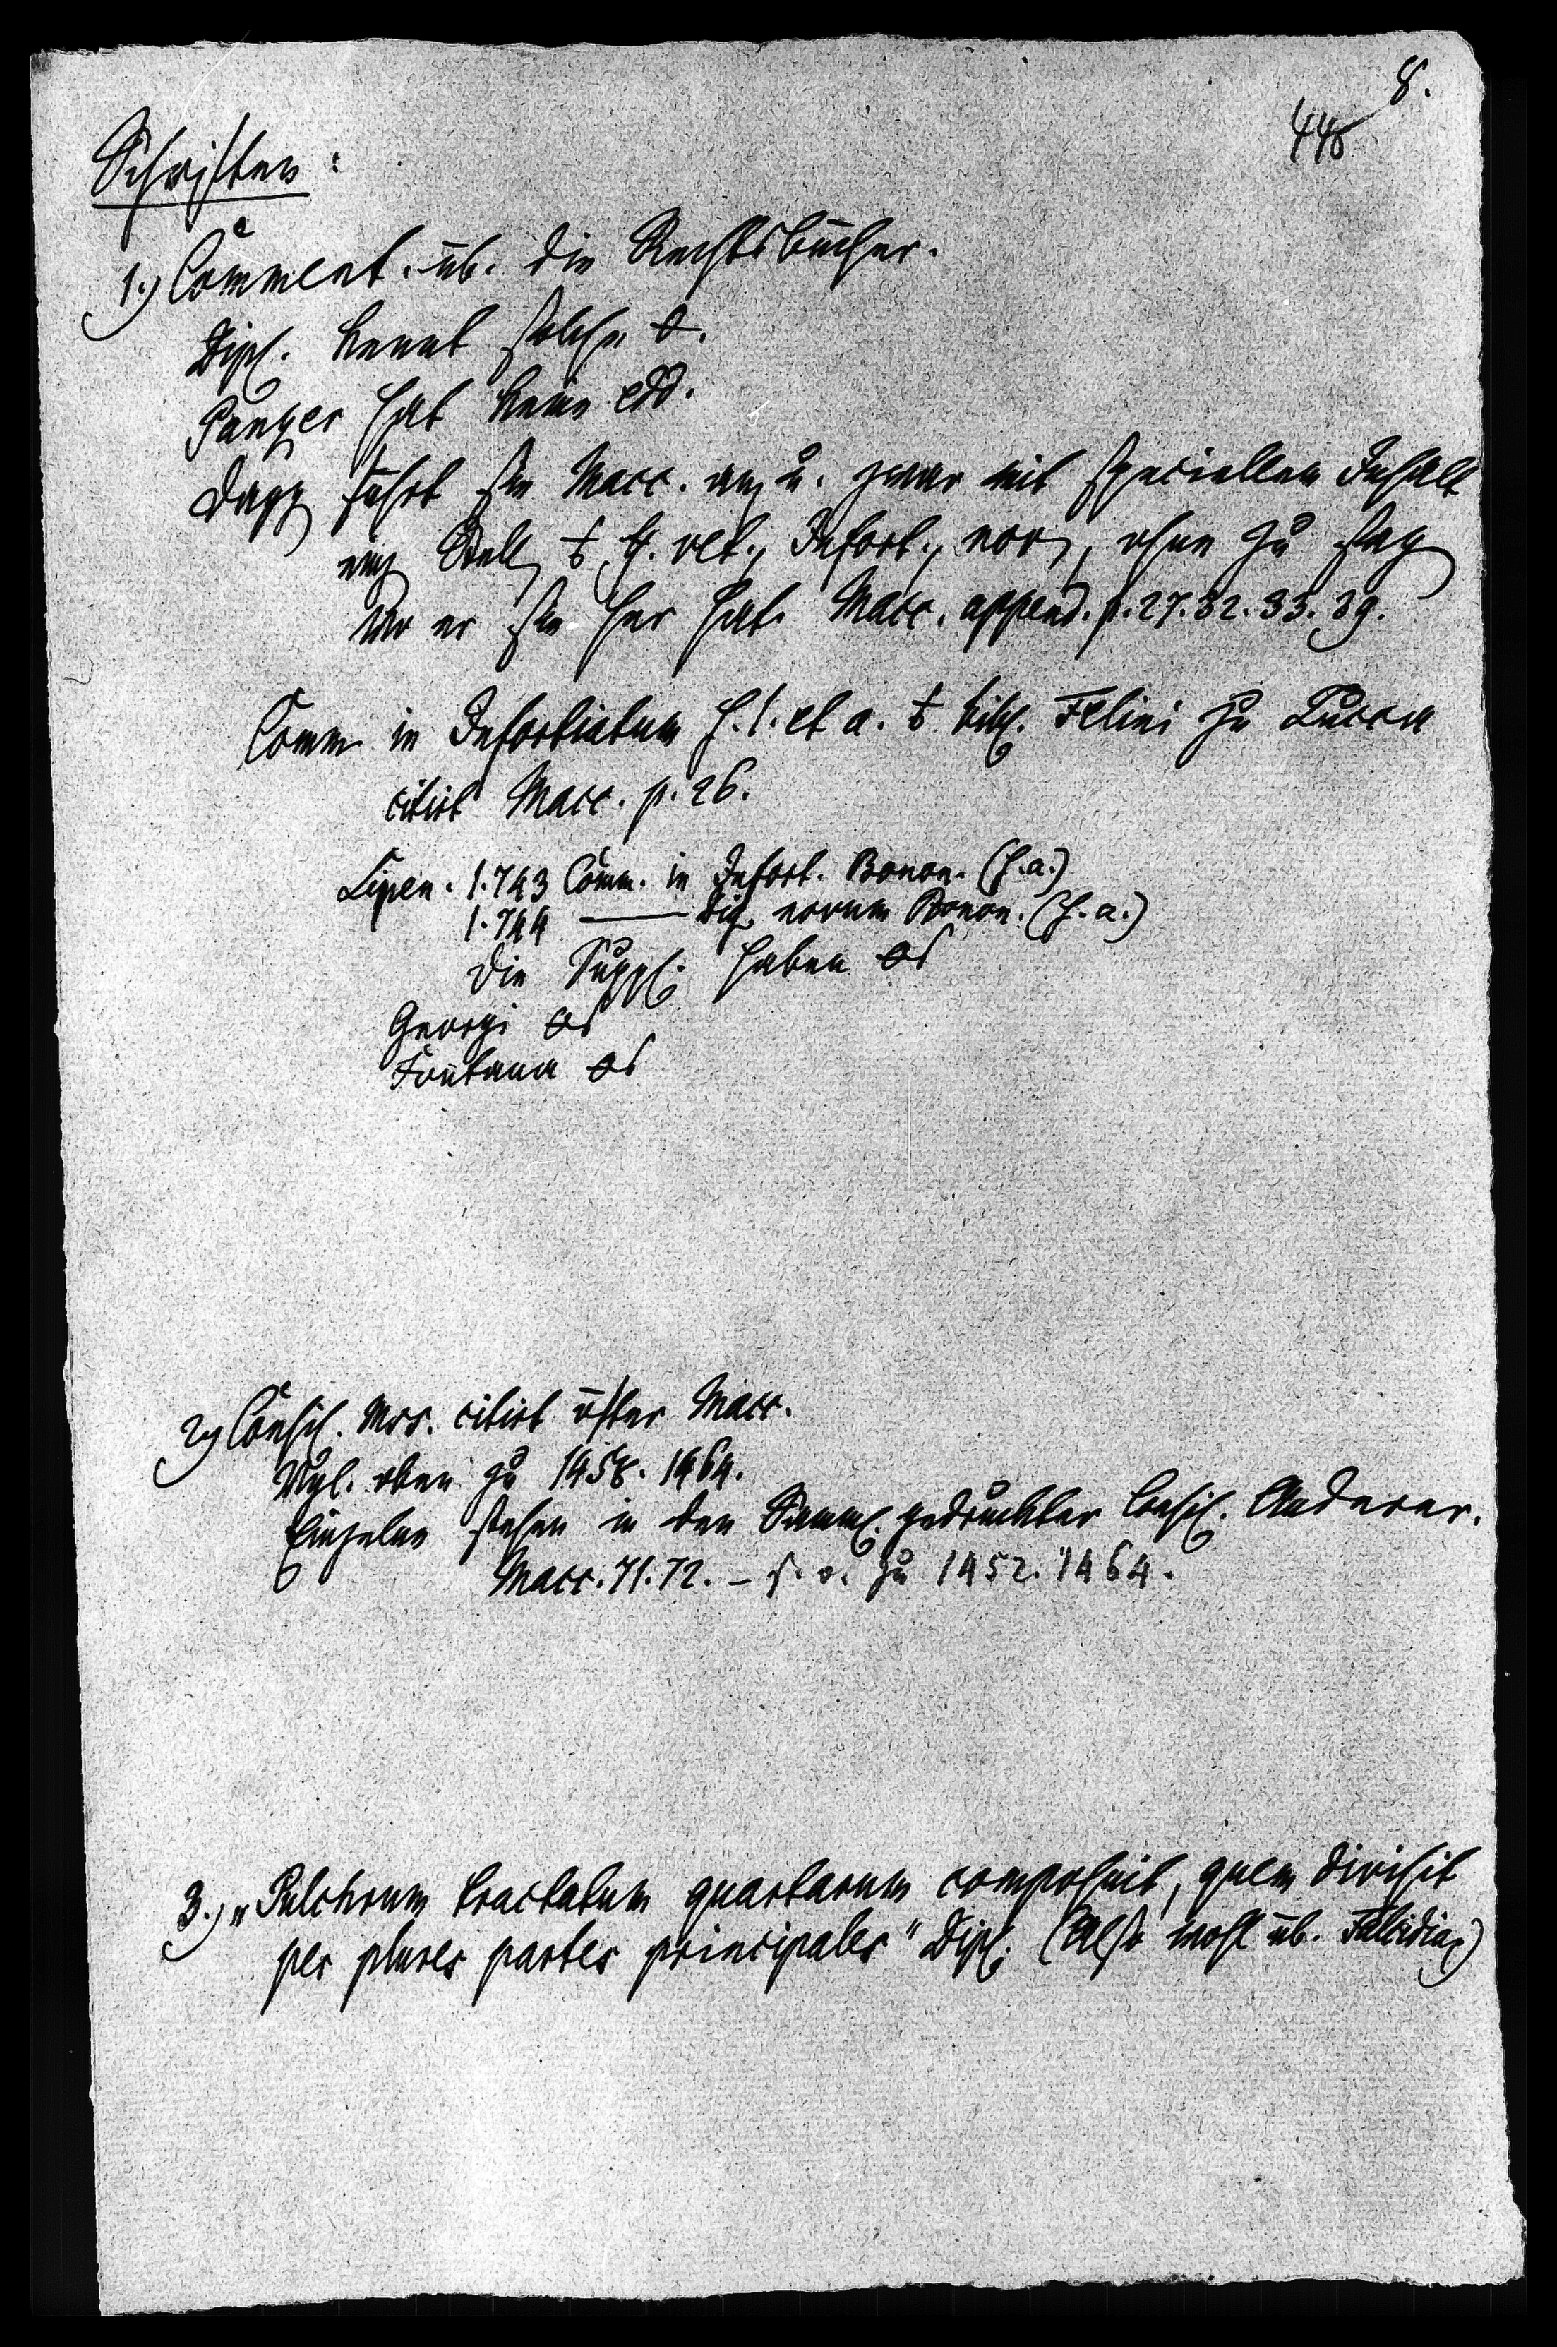 8.
448
Schriften:
1.) Comment. üb. die Rechtsbücher.
Dipl. kennt solche
Panzer hat keine edd.
Dagg führt sie Macc. an u. zwar mit speciellem Inhalt
ein Stell ff. vet., Infort., nov, ohne zu sag
wo er sie her hat. Macc. append. p. 27. 32. 33. 39.
Comm in Infortiatum s. l. et a. bibl. Felini zu Lucca
citirt Macc. p. 26.
Lipen. 1.743 Comm. in Infort. Bonon. (s.a.)
1.744 ——— Dig. novum Bonon. (s.a.)
die Suppl. haben
Georgi
Fontana
2) Consil. Mss. citirt öfter Macc.
Vgl. oben zu 1458. 1464.
Einzelne stehen in den Samml. gedruckter Consil. Anderer.
Macc. 71. 72. – s. o. zu 1452. 1464.
3.) „Pulchrum tractatum quartarum composuit, quem divisit
per plures partes principales" Dipl. (Also wohl üb. Falcidia)